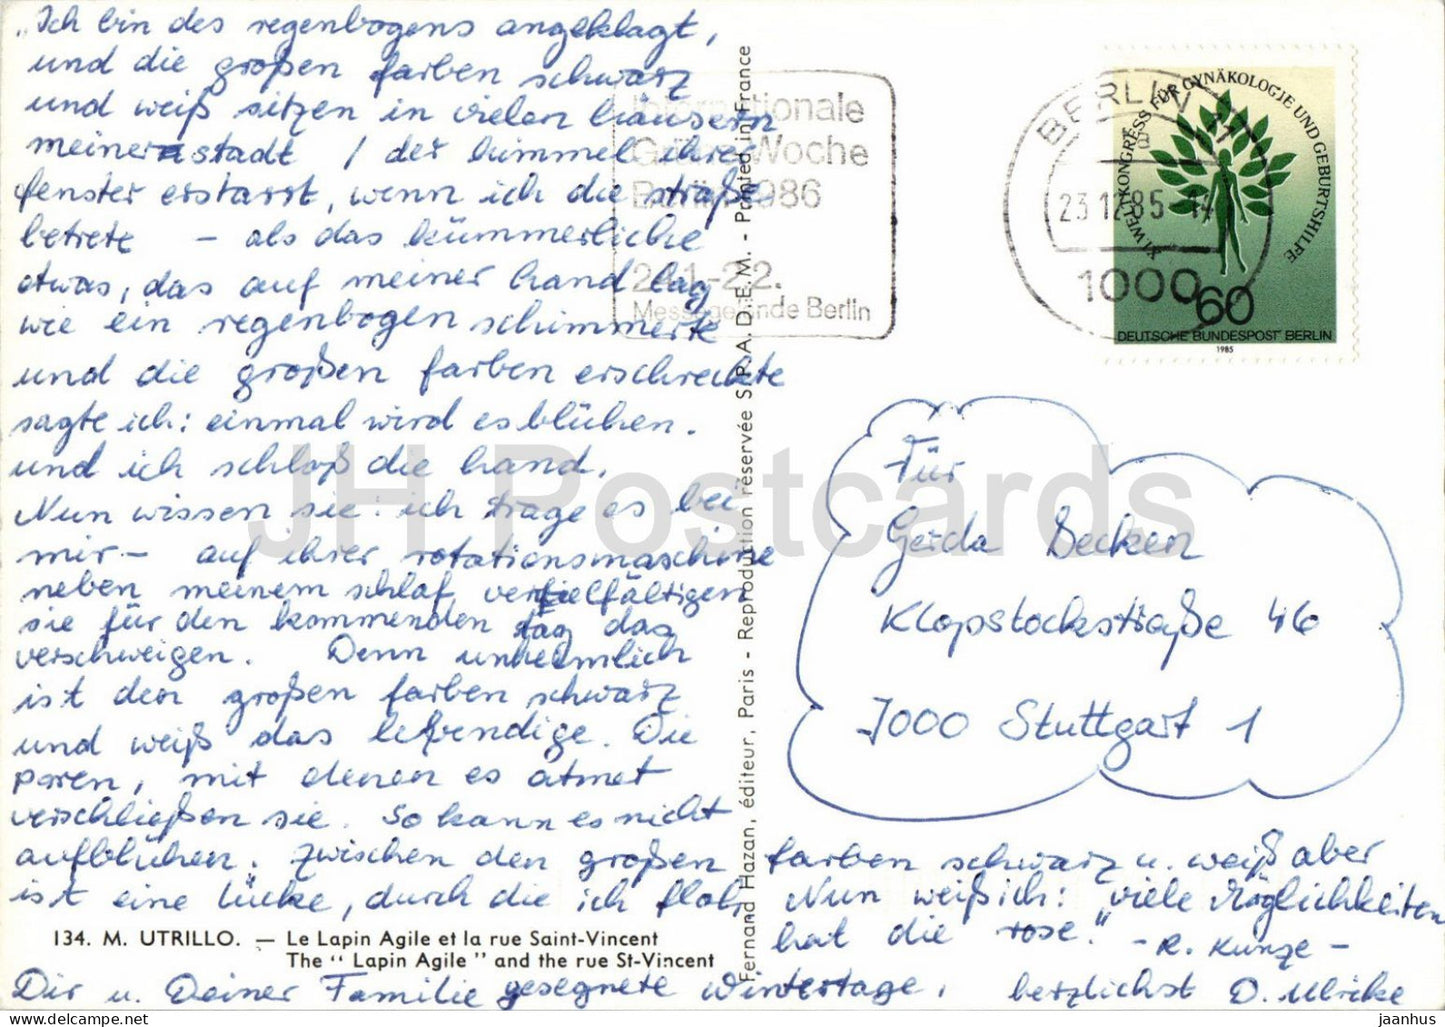 „Ich bin des regenbogens angeklagt,
und die großen farben schwarz
und weiß sitzen in vielen häusern
meiner stadt / der himmel ihrer
fenster erstarrt, wenn ich die straße
betrete – als das kümmerliche
etwas, das auf meiner hand lag
wie ein regenbogen schimmerte
und die großen farben erschreckte
sagte ich: einmal wird es blühen.
und ich schloß die hand.
Nun wissen sie: ich trage es bei
mir – auf ihrer rotationsmaschine
neben meinem schlaf vervielfältigen
sie für den kommenden tag das
verschweigen. Denn unheimlich
ist den großen farben schwarz
und weiß das lebendige. Die
poren, mit denen es atmet
verschließen sie. So kann es nicht
aufblühen. Zwischen den großen farben schwarz u. weiß aber
ist eine lücke, durch die ich floh. Nun weiß ich: "viele Möglichkeiten
hat die rose."
- R. Kunze -
134. M. UTRILLO. — Le Lapin Agile et la rue Saint-Vincent
The "Lapin Agile" and the rue St-Vincent
Dir u. Deiner Familie gesegnete Wintertage, herzlichst D. Ulrike
Fernand Hazan, éditeur, Paris - Reproduction réservée S.P.A.D.E.M. - Printed in France
Internationale
Grüne Woche
Berlin 1986
24.1.-2.2.
Messegelände Berlin
BERLIN 11
23.12.85-14
1000
XI WELTKONGRESS FÜR GYNÄKOLOGIE UND GEBURTSHILFE
60
DEUTSCHE BUNDESPOST BERLIN
1985
Für
Gerda Decken
Klopstockstraße 46
7000 Stuttgart 1
JH Postcards
jaanhus-eu.myshopify.com
jaanhus